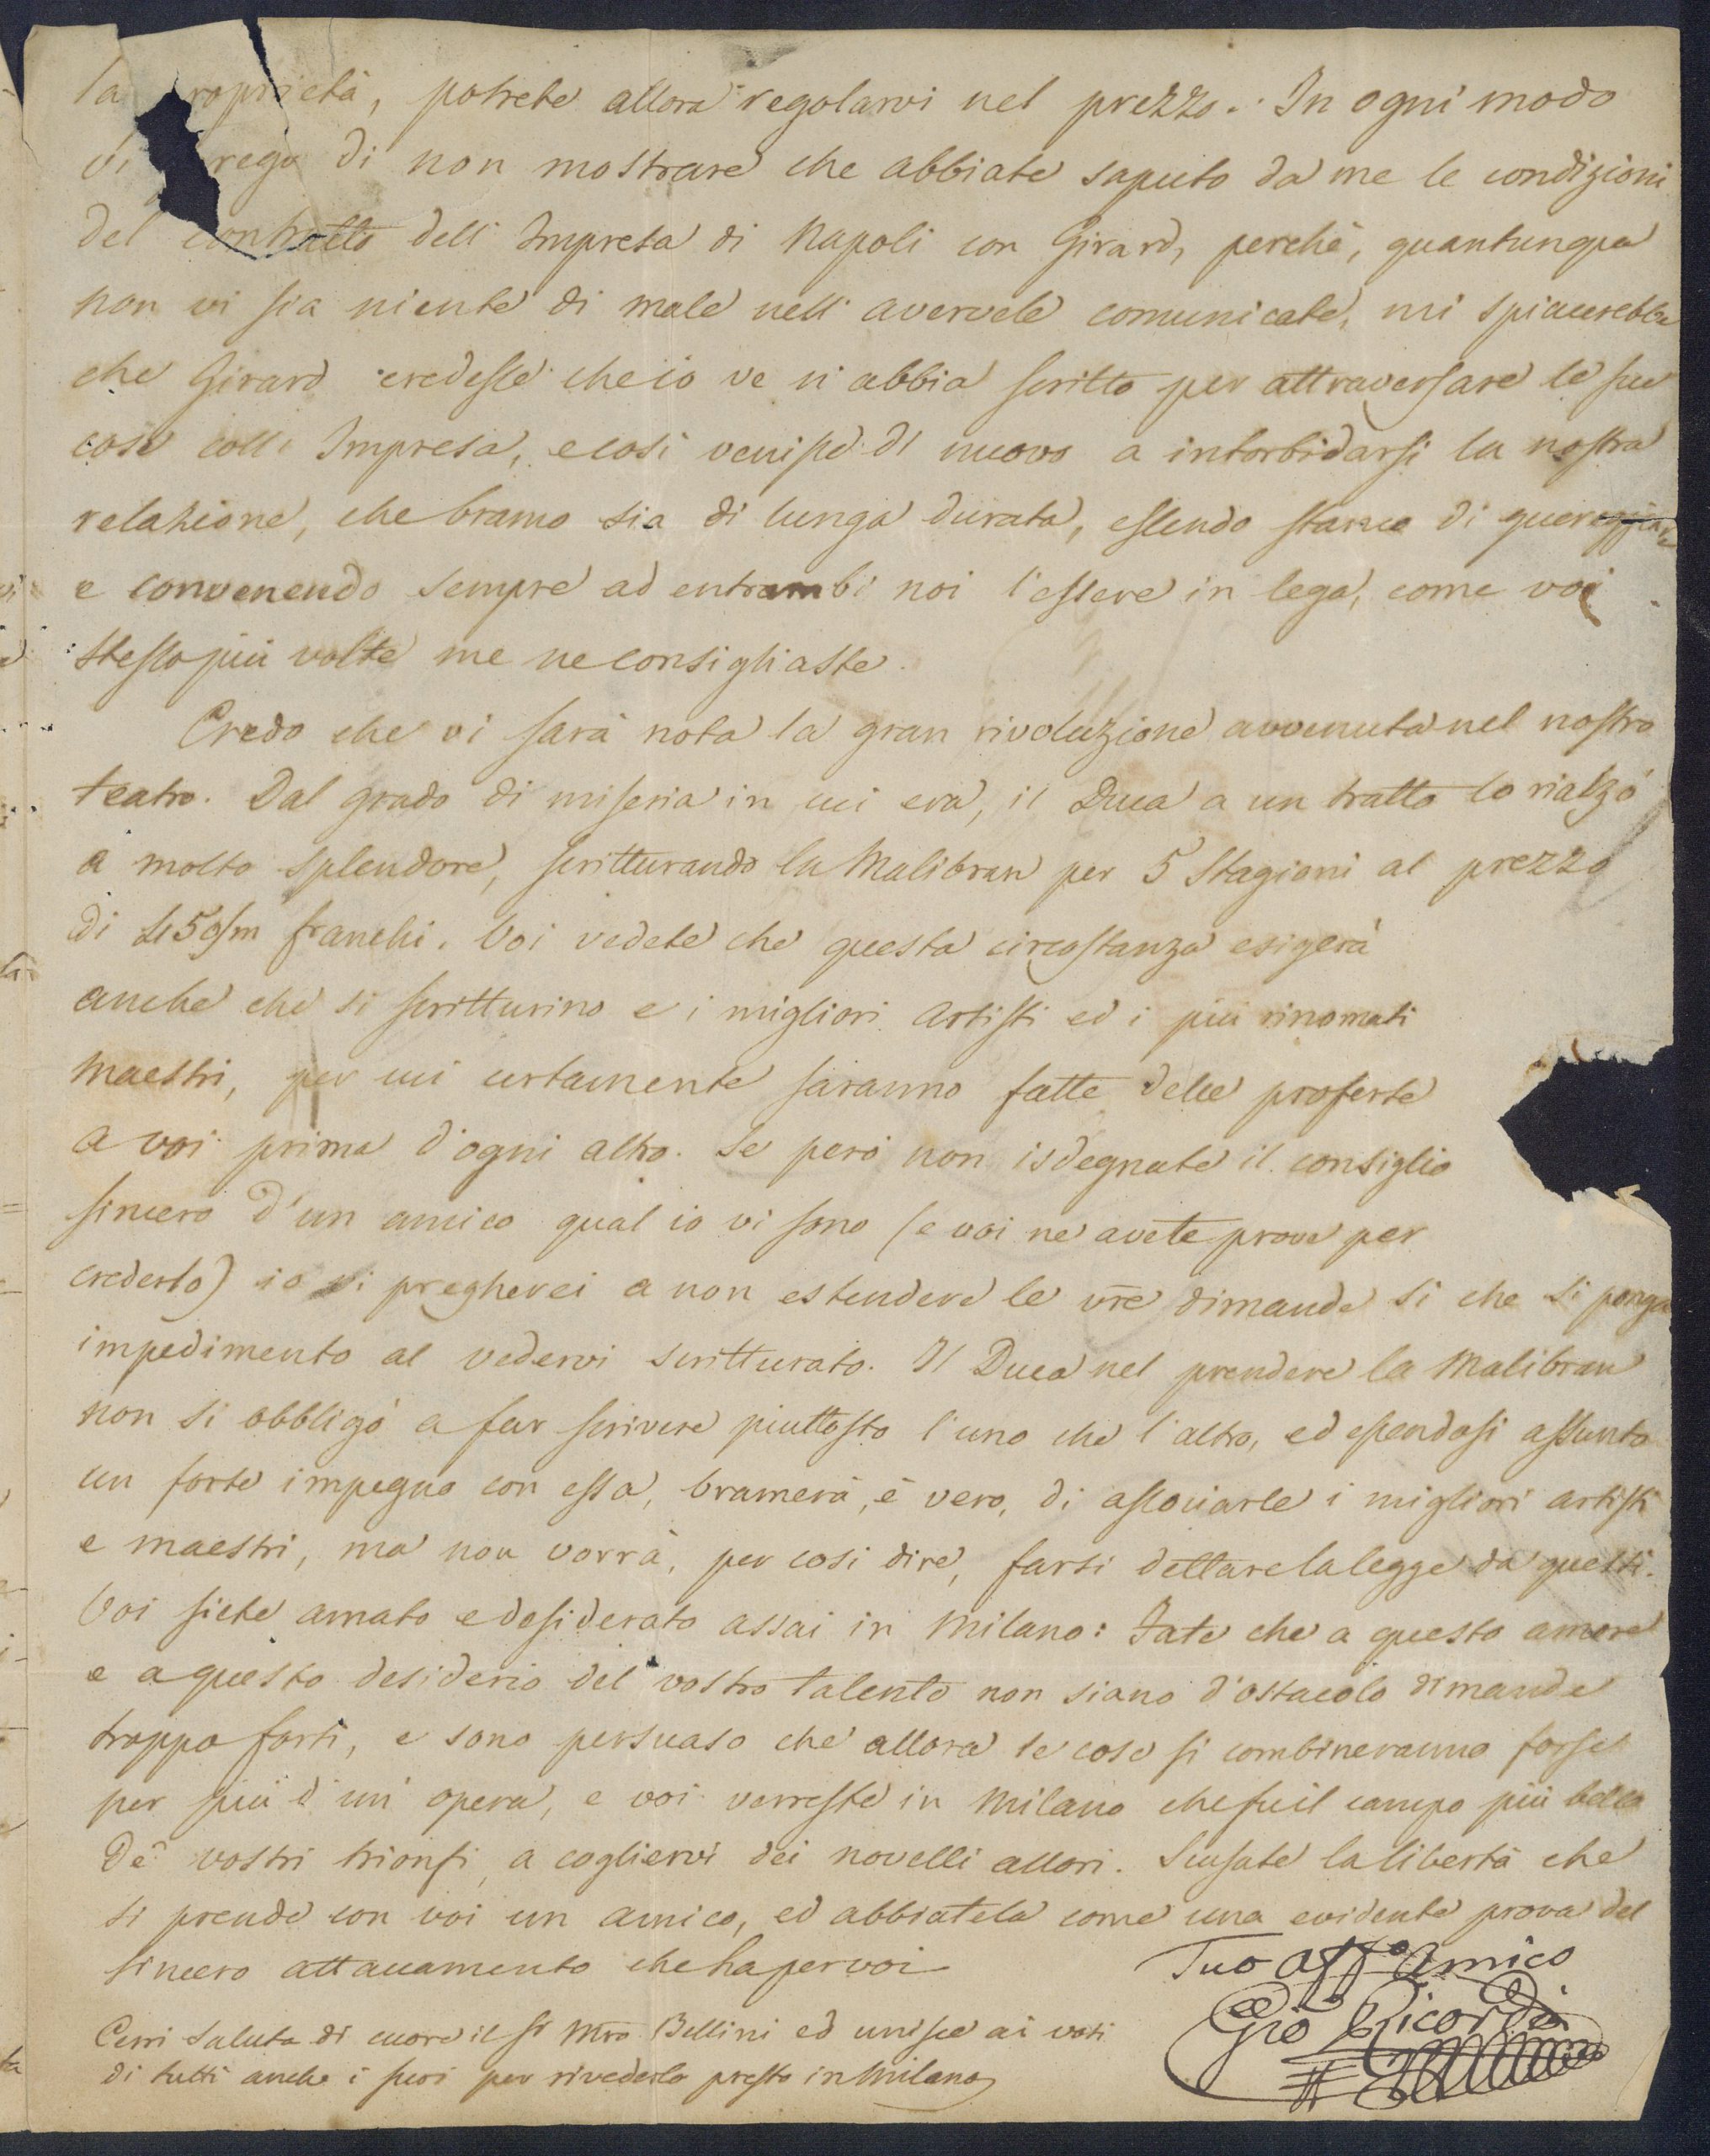 la proprietà, potrete allora regolarvi nel prezzo. In ogni modo
vi prego di non mostrare che abbiate saputo da me le condizioni
del contratto dell' Impresa di Napoli con Girard, perchè, quantunque
non vi sia niente di male nell' avervele comunicate, mi spiacerebbe
che Girard credesse che io ve n' abbia scritto per attraversare le sue
cose coll' Impresa, e così venisse di nuovo a intorbidarsi la nostra
relazione, che bramo sia di lunga durata, essendo stanco di guereggiare
e convenendo sempre ad entrambi noi l'essere in lega, come voi
stesso più volte me ne consigliaste.
Credo che vi sarà nota la gran rivoluzione avvenuta nel nostro
teatro. Dal grado di miseria in cui era, il Duca a un tratto lo rialzò
a molto splendore, scritturando la Malibran per 5 Stagioni al prezzo
di 450/m franchi. Voi vedete che questa circostanza esigerà
anche che si scritturino e i migliori artisti ed i più rinomati
maestri, per cui certamente saranno fatte delle proferte
a voi prima d'ogni altro. Se però non isdegnate il consiglio
sincero d'un amico qual io vi sono (e voi ne avete prove per
crederlo) io vi pregherei a non estendere le vre dimande sì che si ponga
impedimento al vedervi scritturato. Il Duca nel prendere la Malibran
non si obbligò a far scrivere piuttosto l'uno che l'altro, ed essendosi assunto
un forte impegno con essa, bramerà, è vero, di associarle i migliori artisti
e maestri, ma non vorrà, per così dire, farsi dettare la legge da questi.
Voi siete amato e desiderato assai in Milano: Fate che a questo amore
e a questo desiderio del vostro talento non siano d'ostacolo dimande
troppo forti, e sono persuaso che allora le cose si combineranno forse
per più d'un' opera, e voi verreste in Milano che fu il campo più bello
de' vostri trionfi, a cogliervi dei novelli allori. Scusate la libertà che
si prende con voi un amico, ed abbiatela come una evidente prova del
sincero attaccamento che ha per voi
Tuo affo Amico
Gio Ricordi
Cerri saluta di cuore il Sr Mro Bellini ed unisce ai voti
di tutti anche i suoi per rivederlo presto in Milano